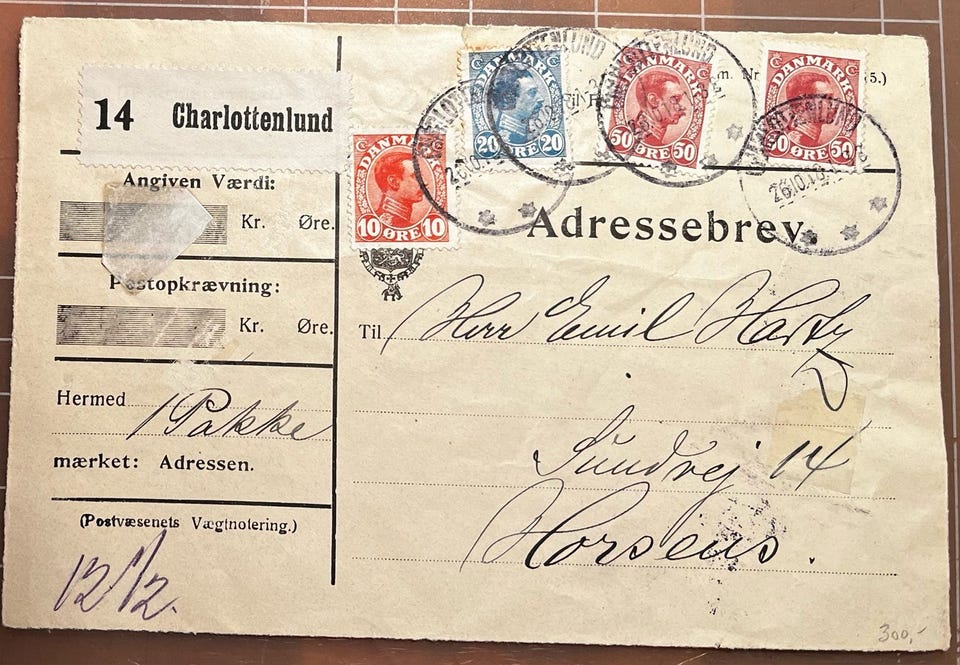 14 Charlottenlund
DANMARK
10 ØRE 10
DANMARK
20 ØRE 20
DANMARK
50 ØRE 50
DANMARK
50 ØRE 50
CHARLOTTENLUND
26.10.19
m. Nr
5.)
Angiven Værdi:
Kr. Øre.
Postopkrævning:
Kr. Øre.
Hermed 1 Pakke
mærket: Adressen.
(Postvæsenets Vægtnotering.)
12 1/2.
Adressebrev.
Til Herr Emil
Sundvej 14
Horsens.
300,-